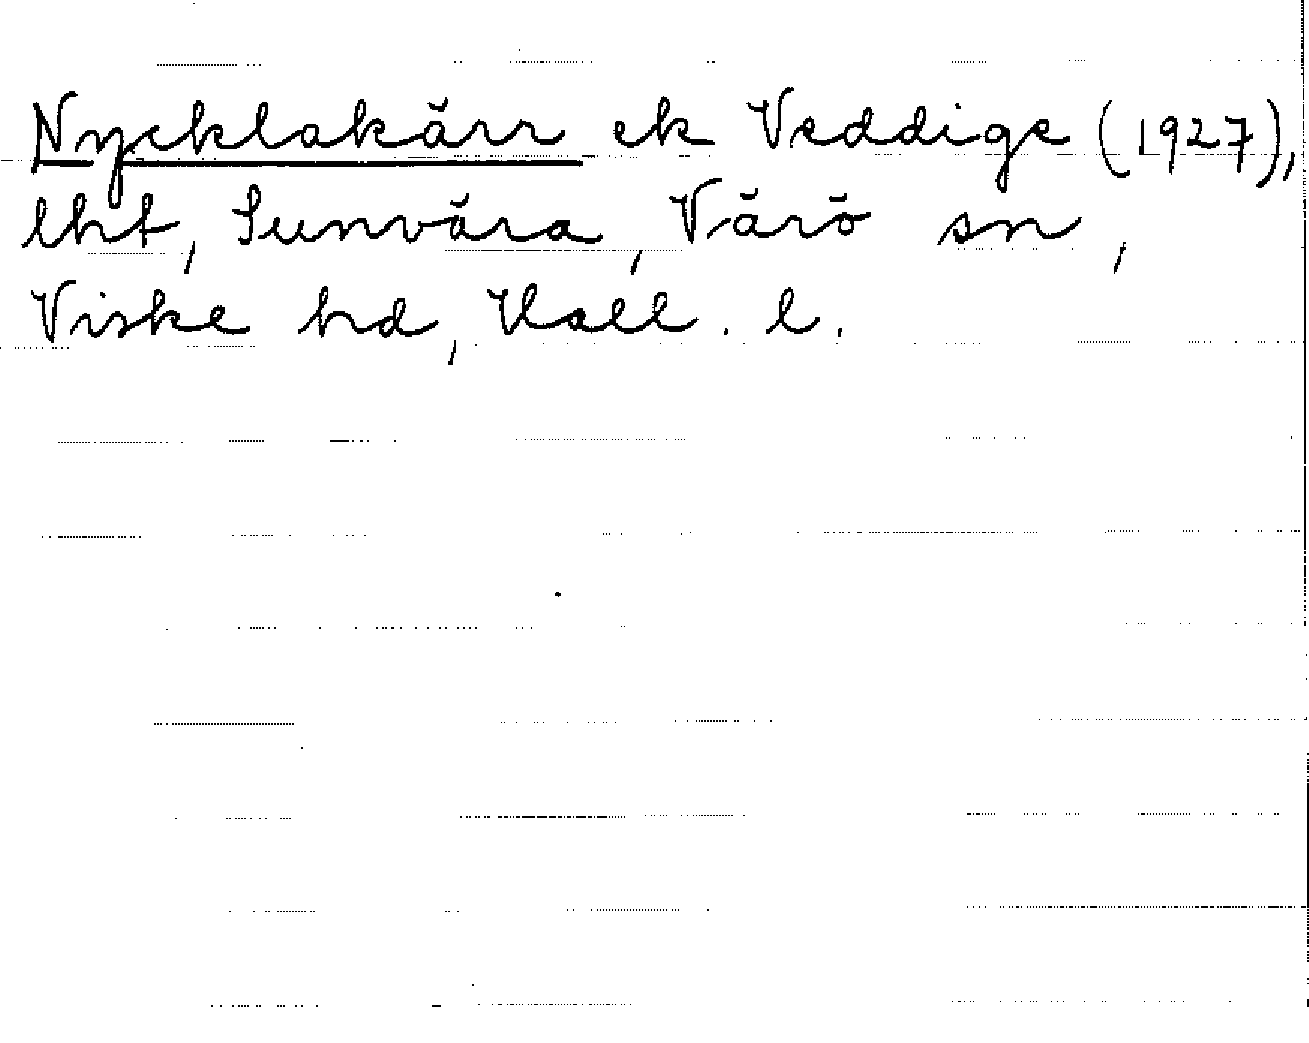 Nycklakärr ek Veddige (1927),
lht, Sunvära, Värö sn,
Viske hd, Hall. l.